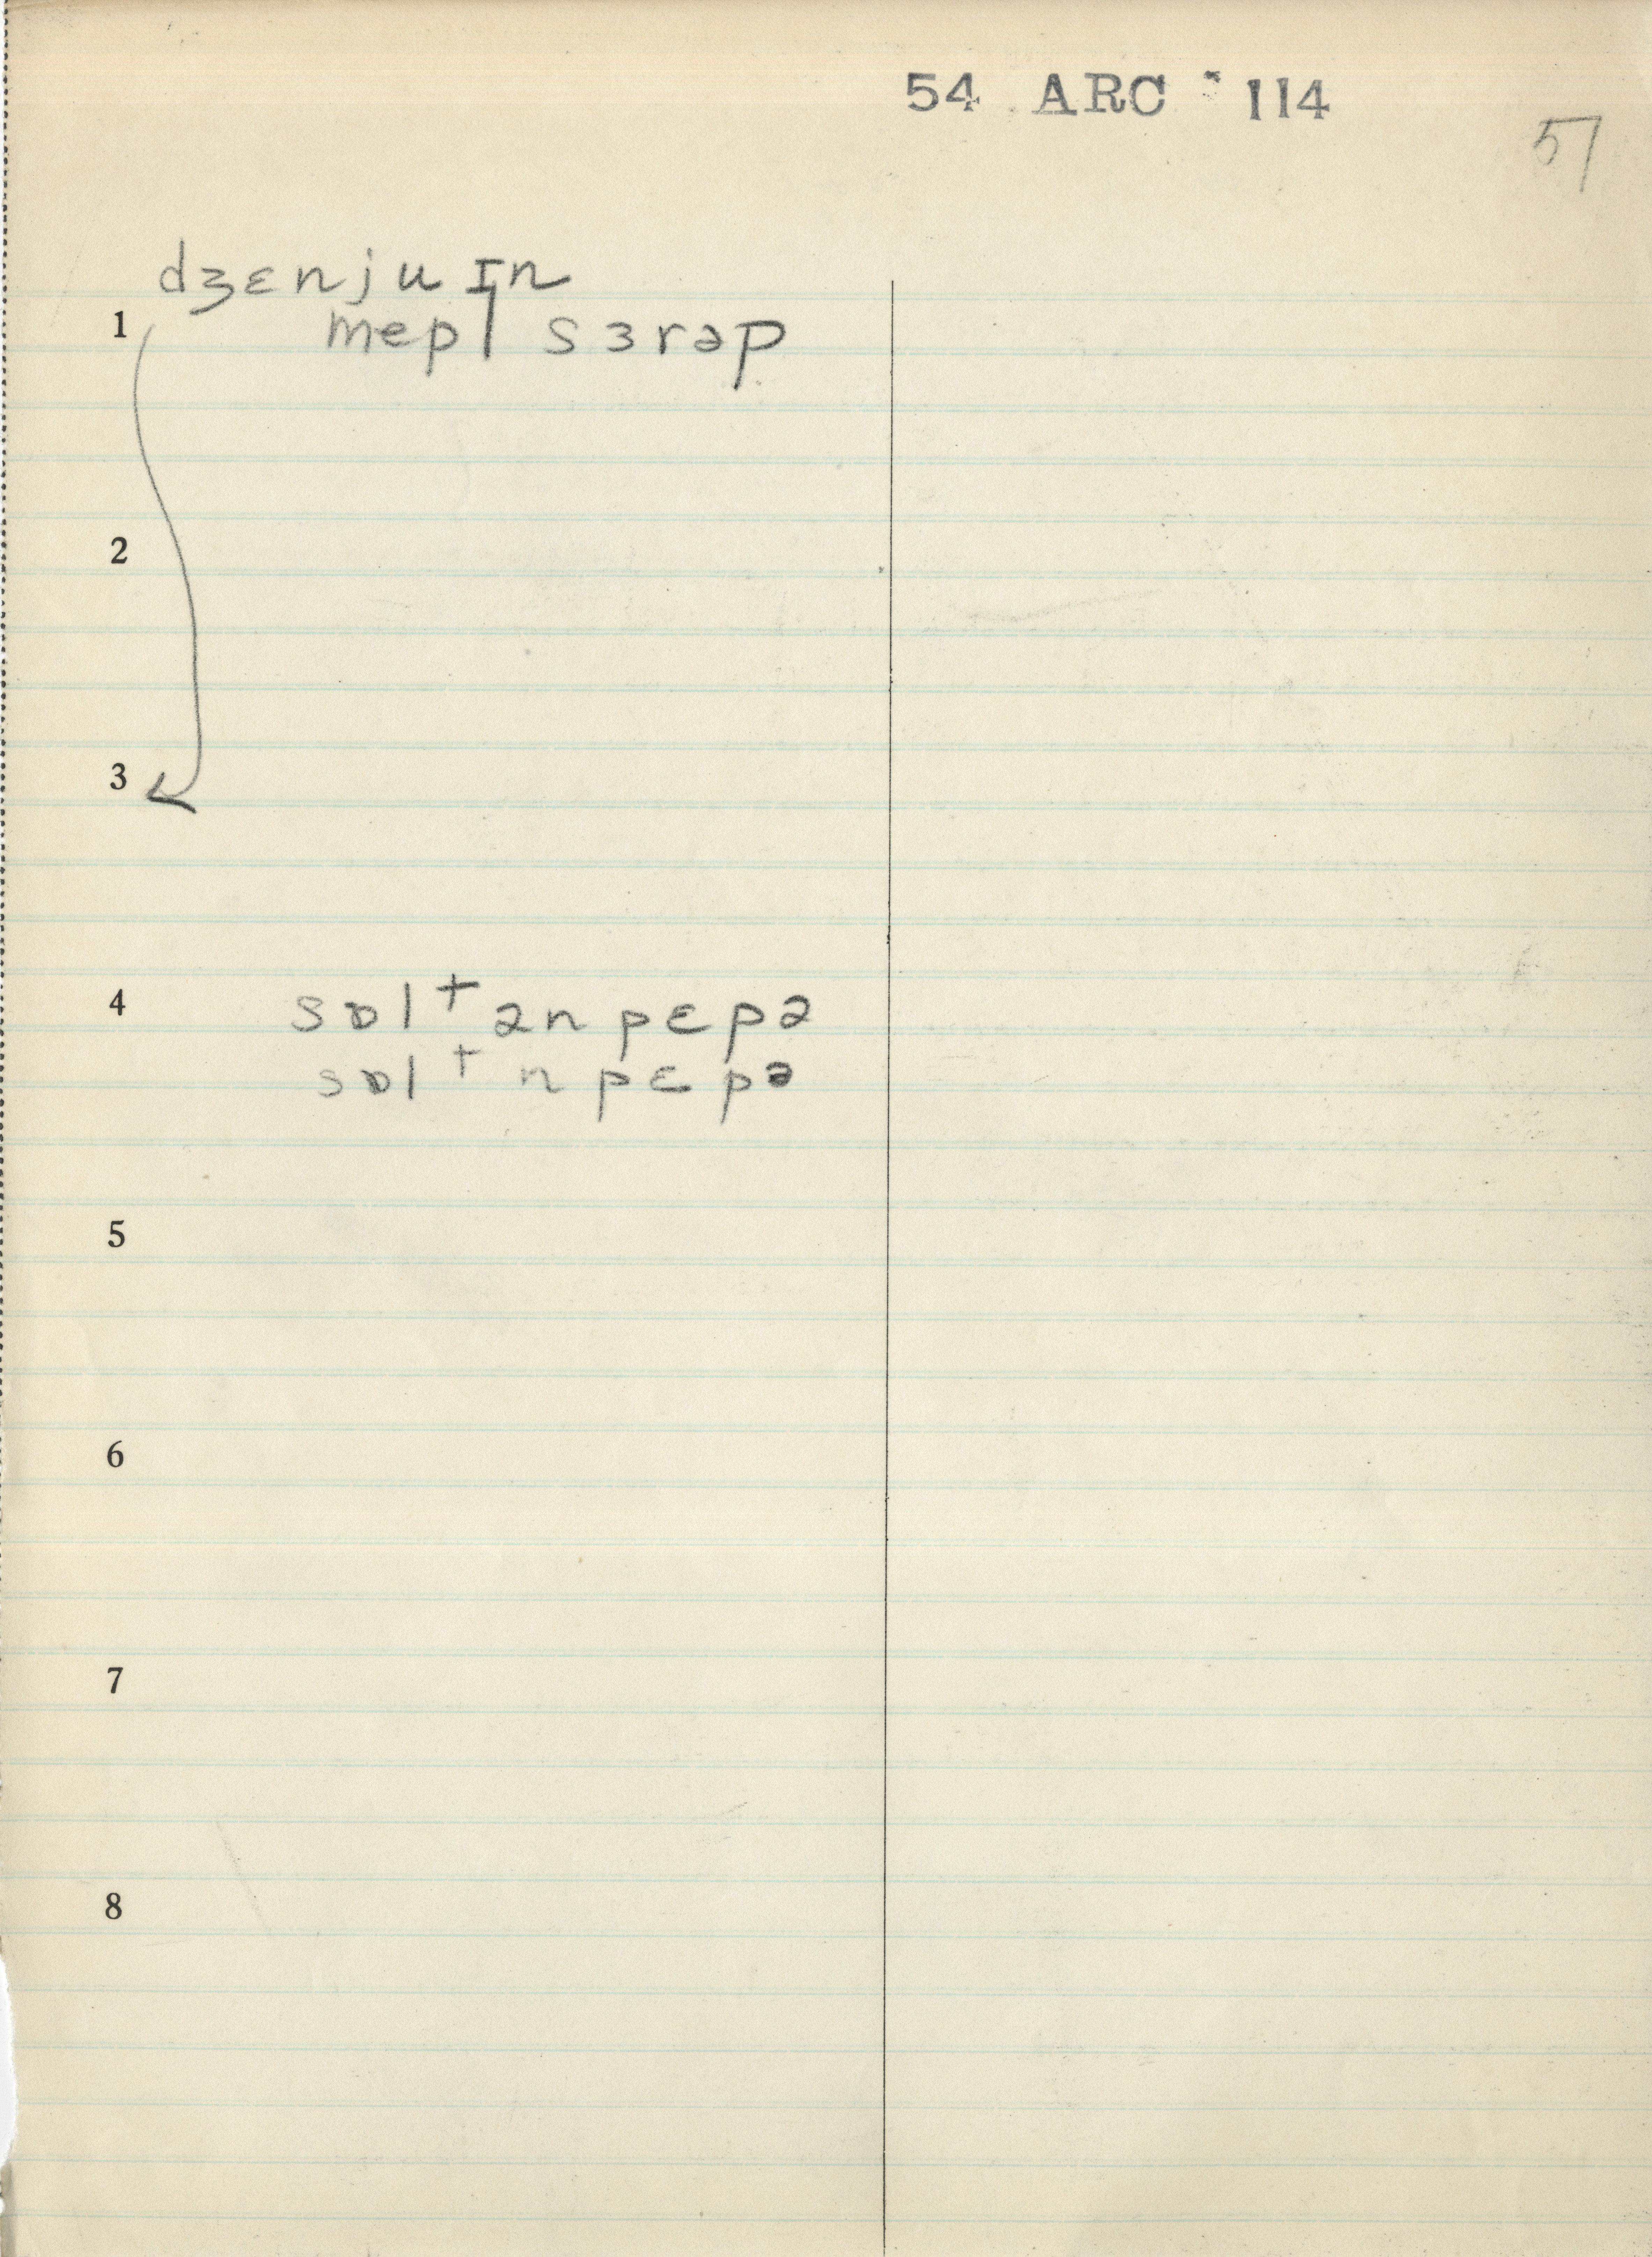 54 ARC 114
57
dʒɛnjuɪn
1 mepl sɜrəp
2
3
4 sɒltənpɛpə
sɒltnpɛpə
5
6
7
8